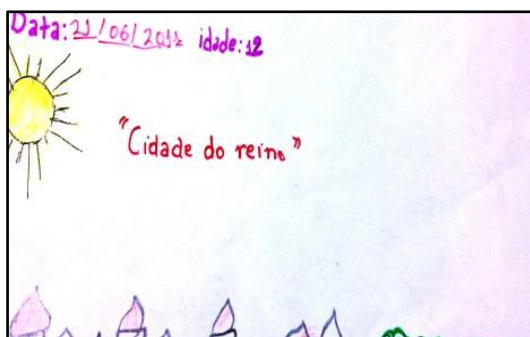 Data: 21/06/201 idade: 12
"Cidade do reino"